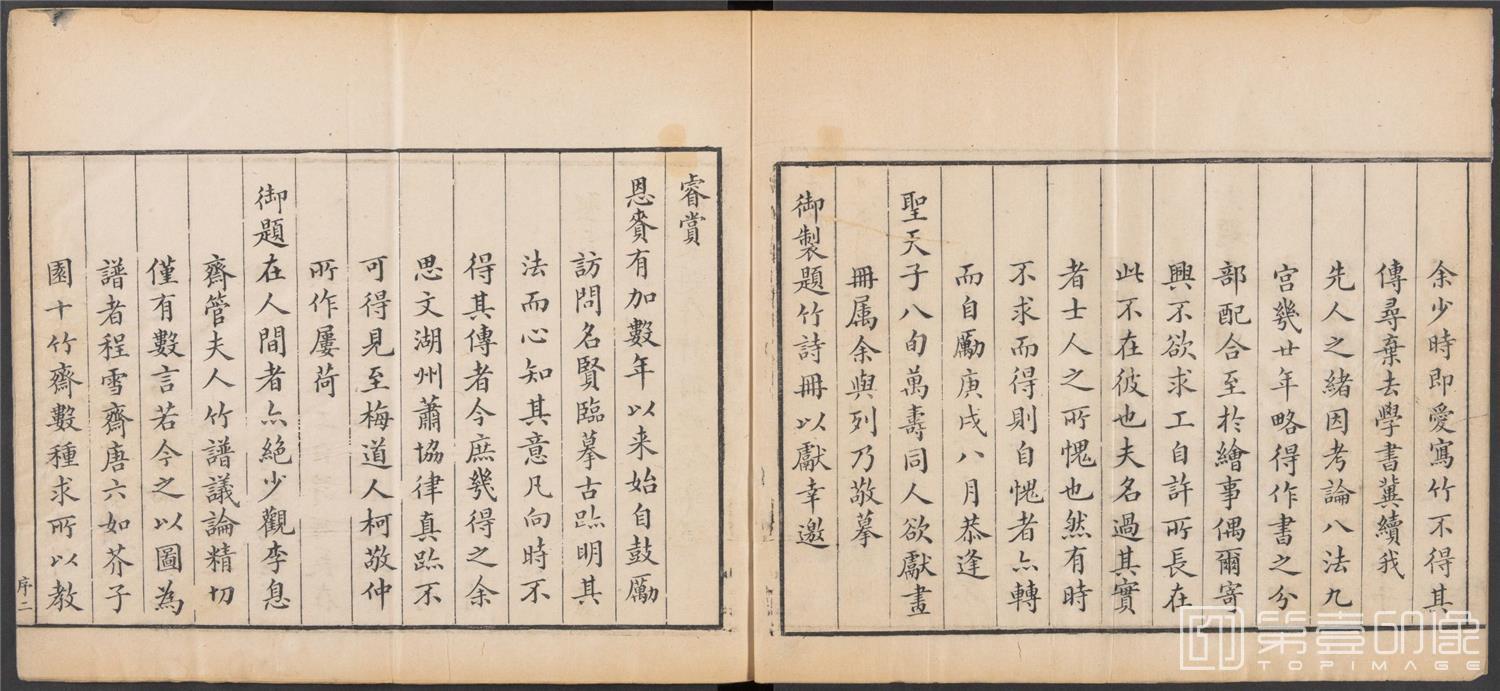 余少時即愛寫竹不得其
傳尋棄去學書冀續我
先人之緒因考論八法九
宮幾廿年略得作書之分
部配合至於繪事偶爾寄
興不欲求工自許所長在
此不在彼也夫名過其實
者士人之所愧也然有時
不求而得則自愧者亦轉
而自勵庚戌八月恭逢
聖天子八旬萬壽同人欲獻畫
冊属余與列乃敬摹
御製題竹詩冊以獻幸邀
睿賞
恩賚有加數年以来始自鼓勵
訪問名賢臨摹古跡明其
法而心知其意凡向時不
得其傳者今庶幾得之余
思文湖州蕭協律真跡不
可得見至梅道人柯敬仲
所作屢荷
御題在人間者亦絶少觀李息
齋管夫人竹譜議論精切
僅有數言若今之以圖為
譜者程雪齋唐六如芥子
園十竹齋數種求所以教
序二
第壹印像
TOPIMAGE